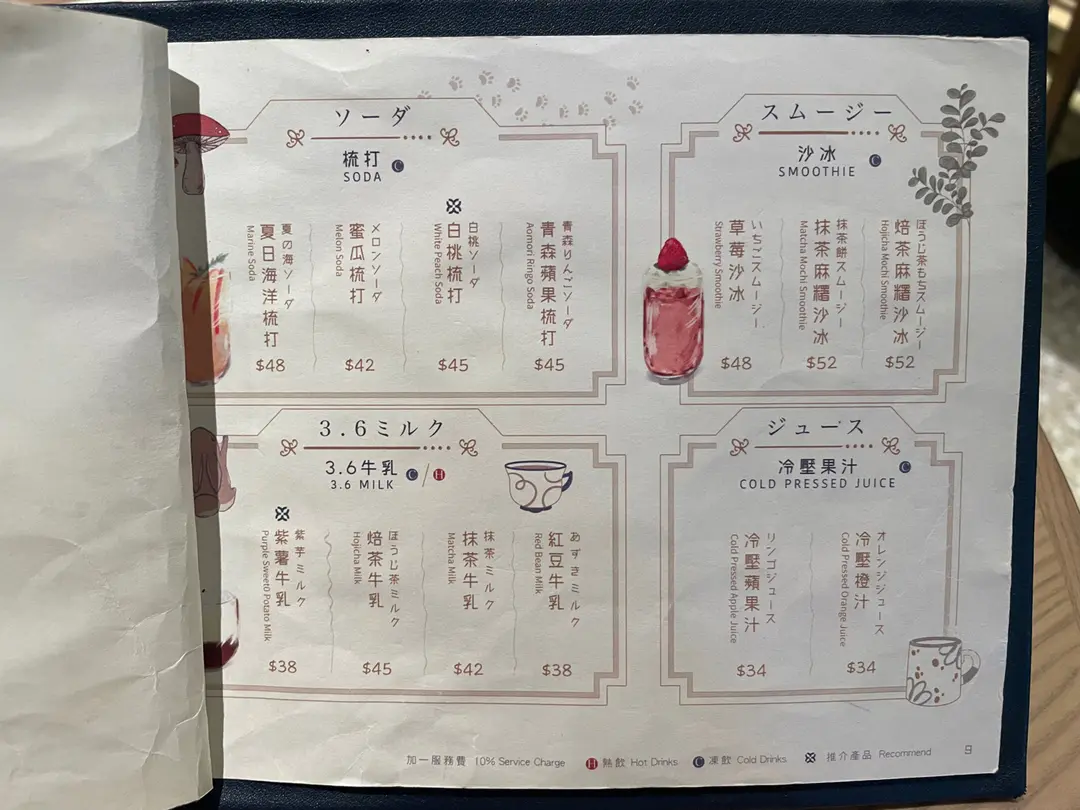 ソーダ
梳打 C
SODA
夏の海ソーダ
夏日海洋梳打
Marine Soda
$48
メロンソーダ
蜜瓜梳打
Melon Soda
$42
白桃ソーダ
白桃梳打
White Peach Soda
$45
青森りんごソーダ
青森蘋果梳打
Aomori Ringo Soda
$45
スムージー
沙冰 C
SMOOTHIE
いちごスムージー
草莓沙冰
Strawberry Smoothie
$48
抹茶餅スムージー
抹茶麻糬沙冰
Matcha Mochi Smoothie
$52
ほうじ茶もちスムージー
焙茶麻糬沙冰
Hojicha Mochi Smoothie
$52
3.6ミルク
3.6牛乳 C/H
3.6 MILK
紫芋ミルク
紫薯牛乳
Purple Sweet0 Potato Milk
$38
ほうじ茶ミルク
焙茶牛乳
Hojicha Milk
$45
抹茶ミルク
抹茶牛乳
Matcha Milk
$42
あずきミルク
紅豆牛乳
Red Bean Milk
$38
ジュース
冷壓果汁 C
COLD PRESSED JUICE
リンゴジュース
冷壓蘋果汁
Cold Pressed Apple Juice
$34
オレンジジュース
冷壓橙汁
Cold Pressed Orange Juice
$34
加一服務費 10% Service Charge H 熱飲 Hot Drinks C 凍飲 Cold Drinks 推介產品 Recommend 9